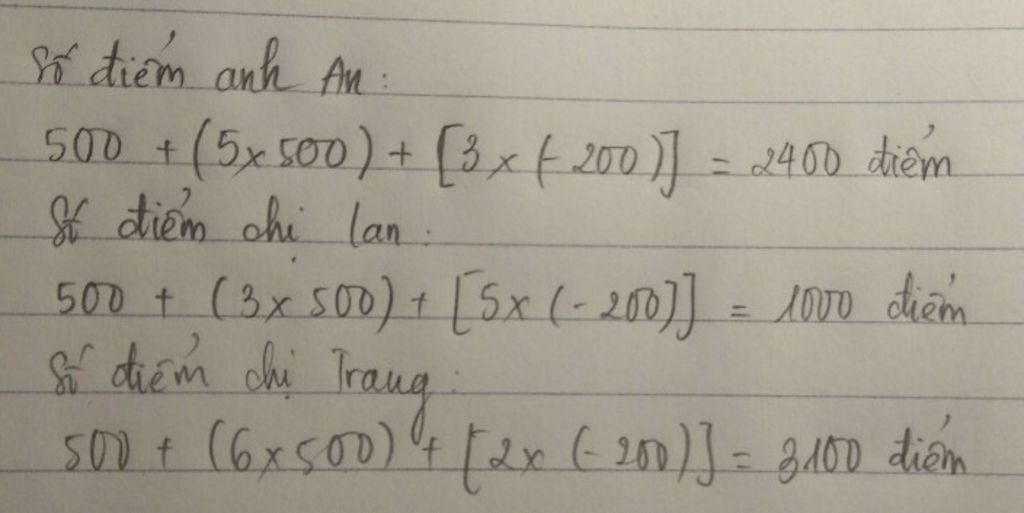 Số điểm anh An:
500 + (5 x 500) + [3 x (-200)] = 2400 điểm
Số điểm chị lan:
500 + (3 x 500) + [5 x (-200)] = 1000 điểm
Số điểm chị Trang:
500 + (6 x 500) + [2 x (-200)] = 3100 điểm